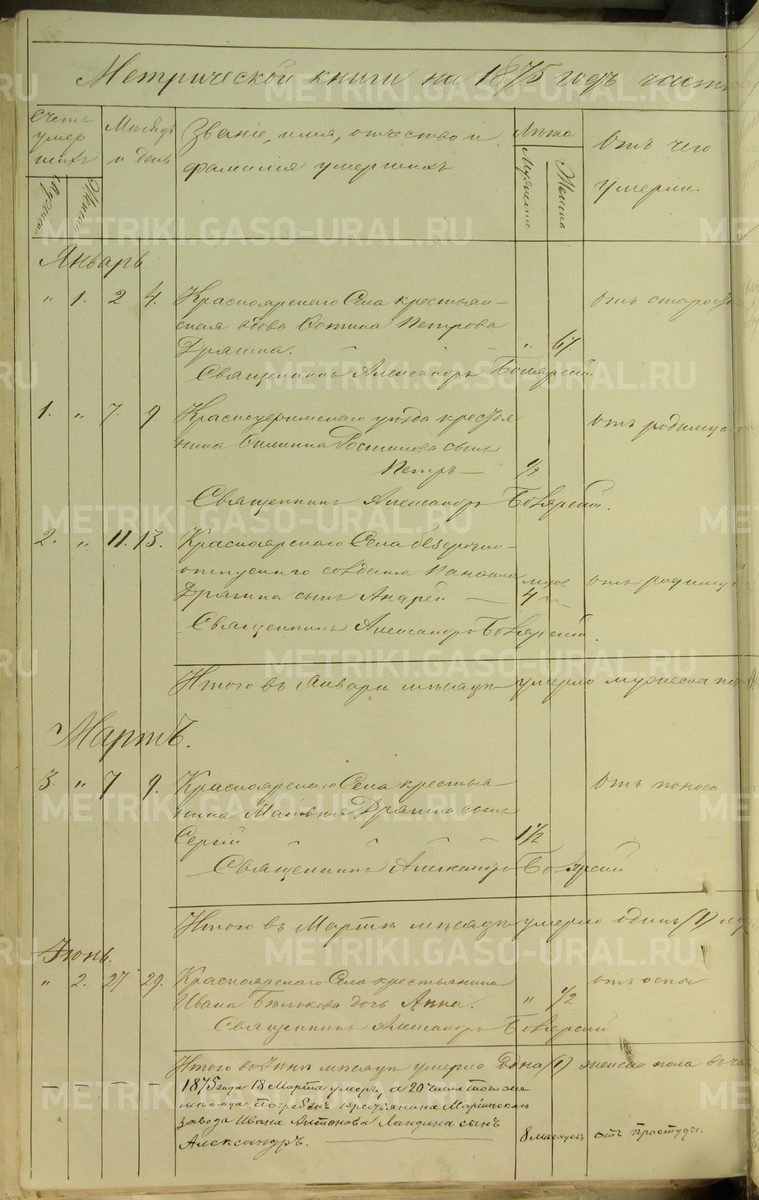 Метрической книги на 1875 годъ часть
METRIKI.GASO-URAL.RU
Счетъ умершихъ
Мужеска
Женска
Мѣсяцъ и день
Званіе, имя, отчество и
фамилія умершихъ
Лѣта
Мужеска
Женска
Отъ чего
умерли.
Январь
" 1. 2 4. Красноярскаго Села крестьян-
ская вдова Петрова
Дрягина. " 67 отъ старости
Священникъ Александръ Боярскій.
1. " 7. 9. Красноуфимскаго уѣзда крестья
нина сынъ
Петръ — 1/2 отъ родимца
Священникъ Александръ Боярскій.
2. " 11. 13. Красноярскаго Села безсрочно-
отпускнаго солдата
Дрягина сынъ Андрей — 4 отъ родимца
Священникъ Александръ Боярскій.
Итого въ Январѣ мѣсяцѣ умерло мужеска
Мартъ.
3. " 7 9. Красноярскаго Села крестья
нина Матвѣя Дрягина сынъ
Сергій 1 1/2 Отъ поноса
Священникъ Александръ Боярскій
Итого въ Мартѣ мѣсяцѣ умерло одинъ (1)
Іюнь.
" 2. 27 29. Красноярскаго Села крестьянина
Ивана Бѣлькова дочь Анна. " 1/2 отъ оспы
Священникъ Александръ Боярскій
Итого въ Іюнѣ мѣсяцѣ умерло одна (1) женска пола
— — — — 1875 года 18 Марта умеръ, а 20 числа того же
мѣсяца погребенъ крестьянина Маріинскаго
завода Ивана Антонова Ландина сынъ
Александръ. — 8 мѣсяцевъ отъ простуды.